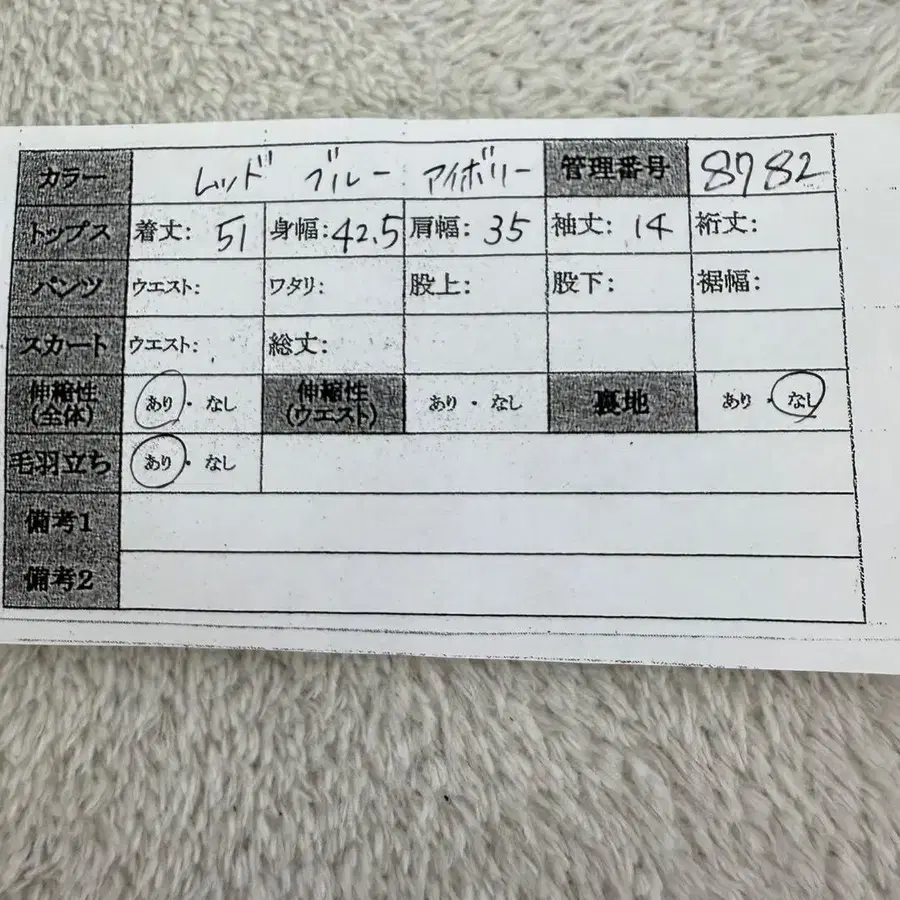 カラー レッド ブルー アイボリー 管理番号 8782
トップス 着丈: 51 身幅: 42.5 肩幅: 35 袖丈: 14 裄丈:
パンツ ウエスト: ワタリ: 股上: 股下: 裾幅:
スカート ウエスト: 総丈:
伸縮性(全体) あり・なし 伸縮性(ウエスト) あり・なし 裏地 あり・なし
毛羽立ち あり・なし
備考1
備考2